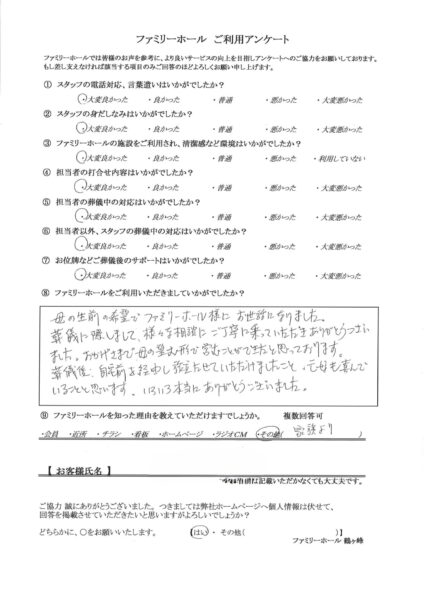 ファミリーホール ご利用アンケート
ファミリーホールでは皆様のお声を参考に、より良いサービスの向上を目指しアンケートへのご協力をお願いしております。
もし差し支えなければ該当する項目のみご回答のほどよろしくお願い申し上げます。
① スタッフの電話対応、言葉遣いはいかがでしたか?
・大変良かった ・良かった ・普通 ・悪かった ・大変悪かった
② スタッフの身だしなみはいかがでしたか?
・大変良かった ・良かった ・普通 ・悪かった ・大変悪かった
③ ファミリーホールの施設をご利用され、清潔感など環境はいかがでしたか?
・大変良かった ・良かった ・普通 ・悪かった ・利用していない
④ 担当者の打合せ内容はいかがでしたか?
・大変良かった ・良かった ・普通 ・悪かった ・大変悪かった
⑤ 担当者の葬儀中の対応はいかがでしたか?
・大変良かった ・良かった ・普通 ・悪かった ・大変悪かった
⑥ 担当者以外、スタッフの葬儀中の対応はいかがでしたか?
・大変良かった ・良かった ・普通 ・悪かった ・大変悪かった
⑦ お位牌などご葬儀後のサポートはいかがでしたか?
・大変良かった ・良かった ・普通 ・悪かった ・大変悪かった
⑧ ファミリーホールをご利用いただきましていかがでしたか?
母の生前の希望でファミリーホール様にお世話になりました。
葬儀に際しまして、様々な相談にご丁寧に乗っていただきありがとうござい
ました。おかげさまで母の望む形で営むことができたと思っております。
葬儀後、自宅前を経由し
させていただけましたこと、母も喜んで
いることと思います。いろいろ本当にありがとうございました。
⑨ ファミリーホールを知った理由を教えていただけますでしょうか。 複数回答可
・会員 ・近所 ・チラシ ・看板 ・ホームページ ・ラジオCM ・その他( 家族より )
【 お客様氏名 】
記載いただかなくても大丈夫です。
ご協力 誠にありがとうございました。つきましては弊社ホームページへ個人情報は伏せて、
回答を掲載させていただきたいと思いますがよろしいでしょうか?
どちらかに、○をお願いいたします。 【はい・ その他( )】
ファミリーホール 鶴ヶ峰